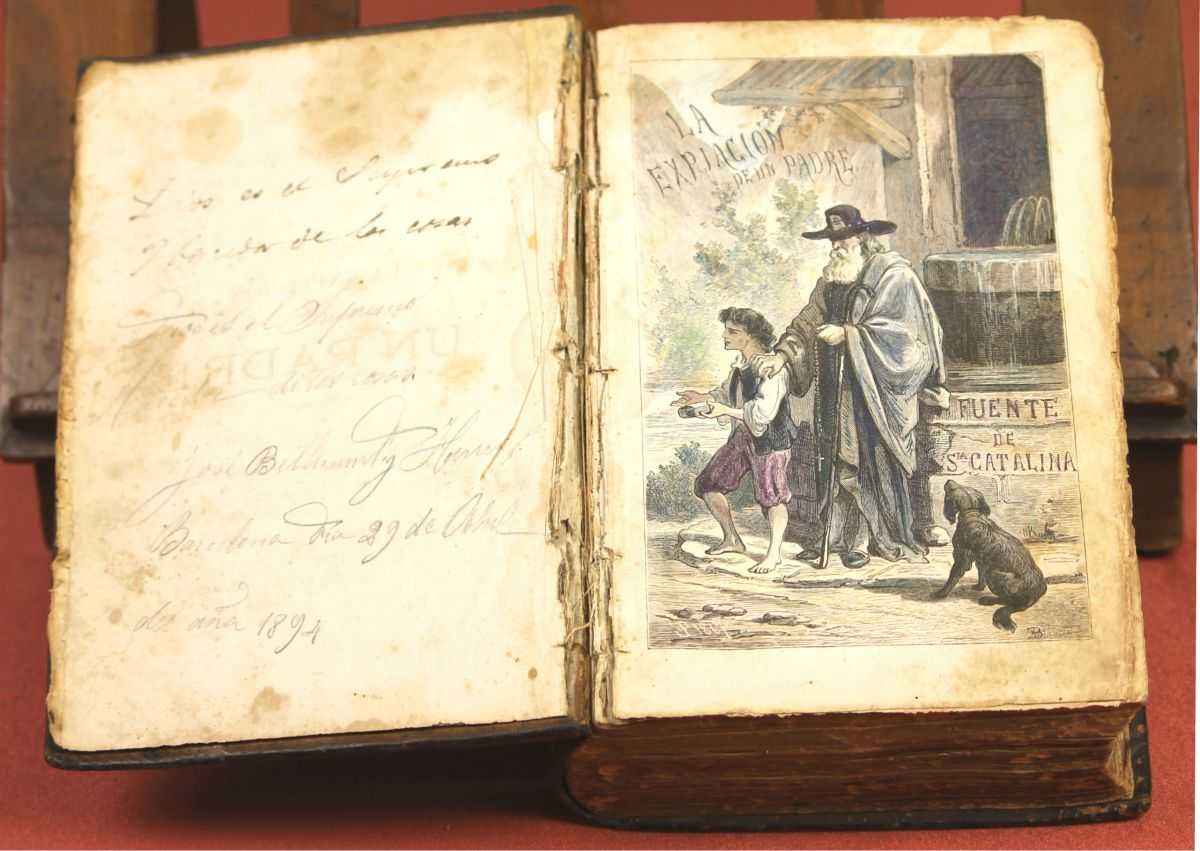 Dios es el Supremo
de las cosas
Dios es el Supremo
de las cosas
José Bellmunt y
Barcelona día 29 de Abril
del año 1894
LA
EXPIACIÓN
DE UN PADRE.
FUENTE
DE
STA CATALINA